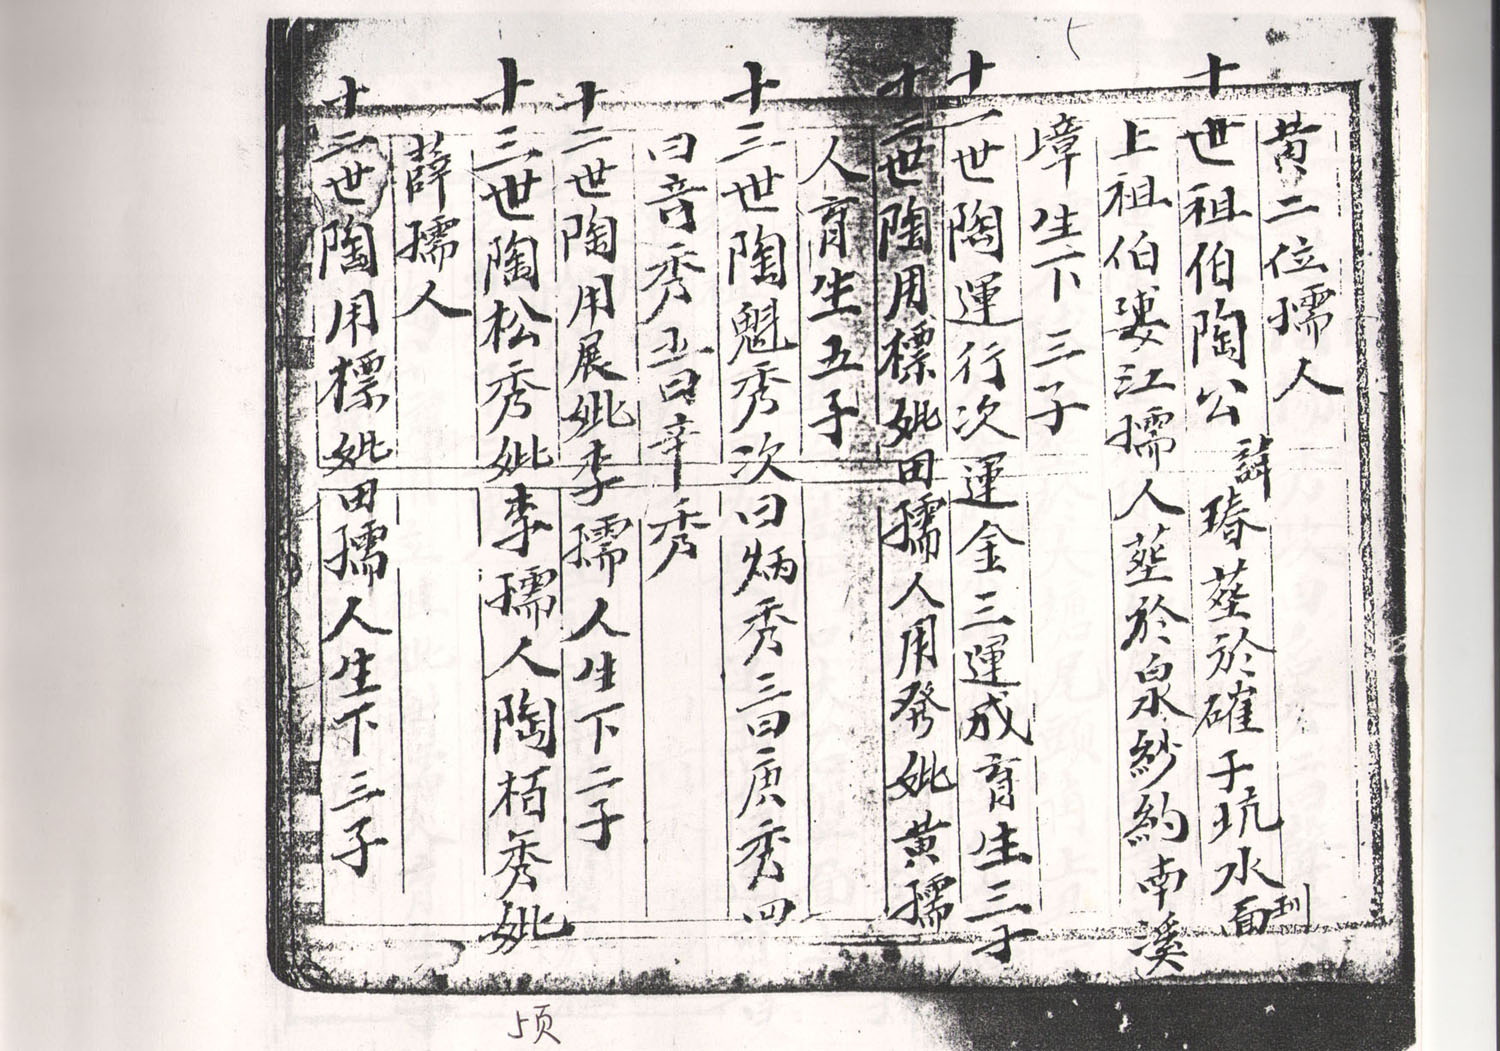 黄二位孺人
十世祖伯陶公諱瑃葬於確子坑水面
上祖伯婆江孺人葬於泉紗約南溪
墇生下三子
十一世陶運行次運金三運成育生三子
十二世陶用標妣田孺人用發妣黄孺
人育生五子
十三世陶魁秀次曰炳秀三曰庚秀四
曰音秀五曰辛秀
十二世陶用展妣李孺人生下二子
十三世陶松秀妣李孺人陶栢秀妣
薛孺人
十二世陶用標妣田孺人生下三子
5页